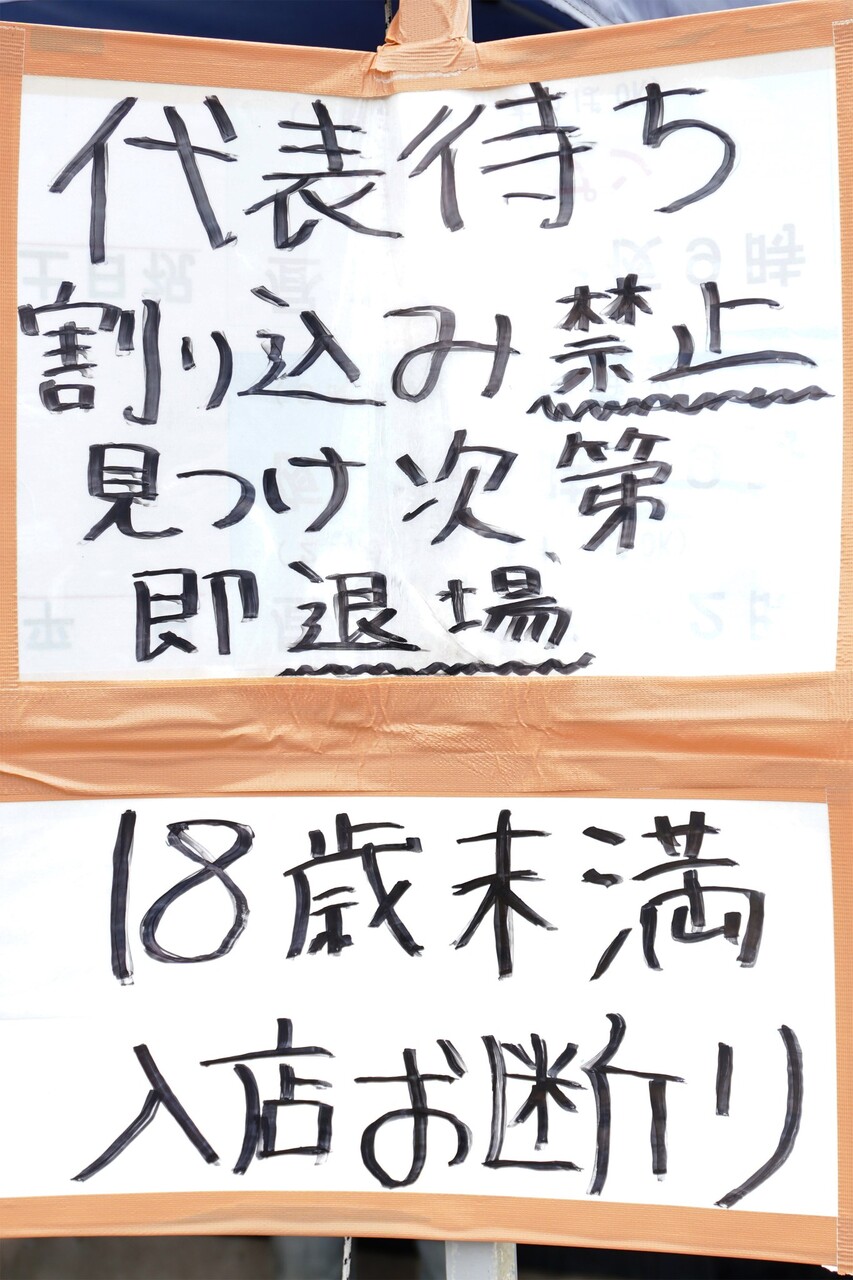 代表待ち
割り込み禁止
見つけ次第
即退場
18歳未満
入店お断り